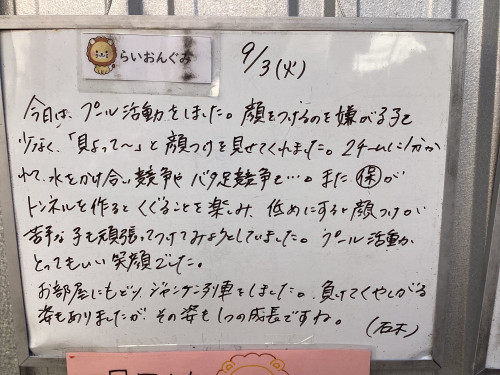 らいおんぐみ
9/3(火)
今日は、プール活動をしました。顔をつけるのを嫌がる子も
少なく、「見よって〜」と顔つけを見せてくれました。2チームに分か
れて、水をかけ合い競争や バタ足競争も…。また ㋭が
トンネルを作ると くぐることを楽しみ、低めにすると顔つけが
苦手な子も頑張ってつけてみようとしていました。プール活動が
とってもいい笑顔でした。
お部屋にもどり、ジャンケン列車をしました。負けてくやしがる
姿もありましたが、その姿も1つの成長ですね。